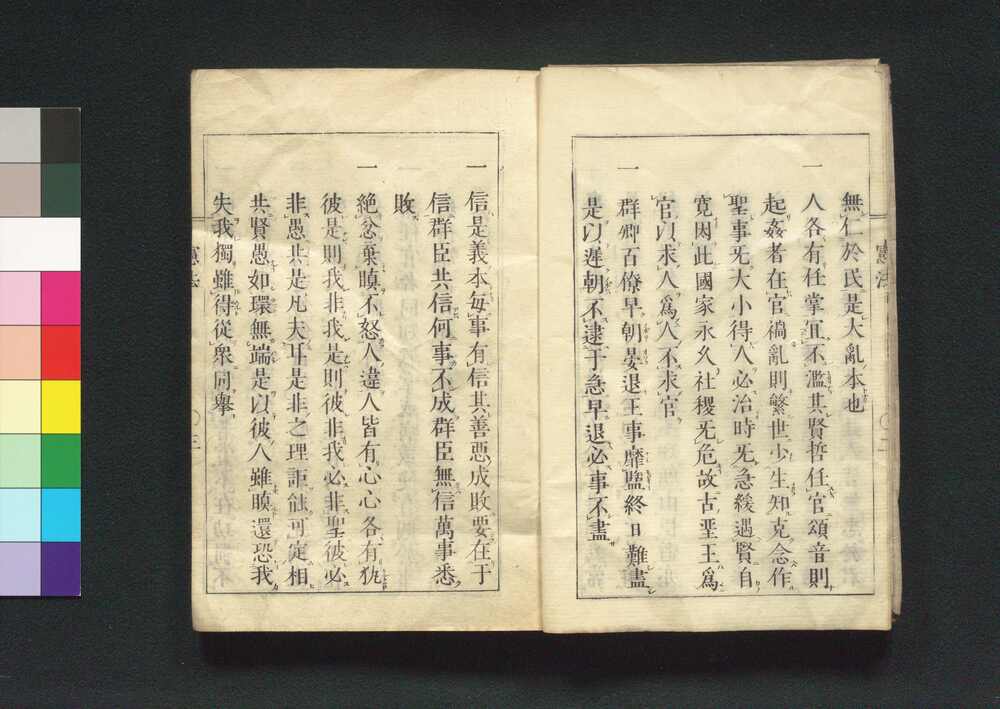 無仁於民是大亂本也
一
人各有任掌宜不濫其賢哲任官頌音則
起姧者在官禍亂則繁世少生知克念作
聖事旡大小得人必治時旡急緩遇賢自
寛因此國家永久社稷旡危故古聖王爲
官以求人爲人不求官
一
群卿百僚早朝晏退王事靡盬終日難盡
是以遲朝不逮于急早退必事不盡
憲法
一
信是義本毎事有信其善惡成敗要在于
信群臣共信何事不成群臣無信萬事悉
敗
一
絶忿棄瞋不怒人違人皆有心心各有執
彼是則我非我是則彼非我必非聖彼必
非愚共是凡夫耳是非之理詎能可定相
共賢愚如環無端是以彼人雖瞋還恐我
失我獨雖得從衆同擧
憲法
三